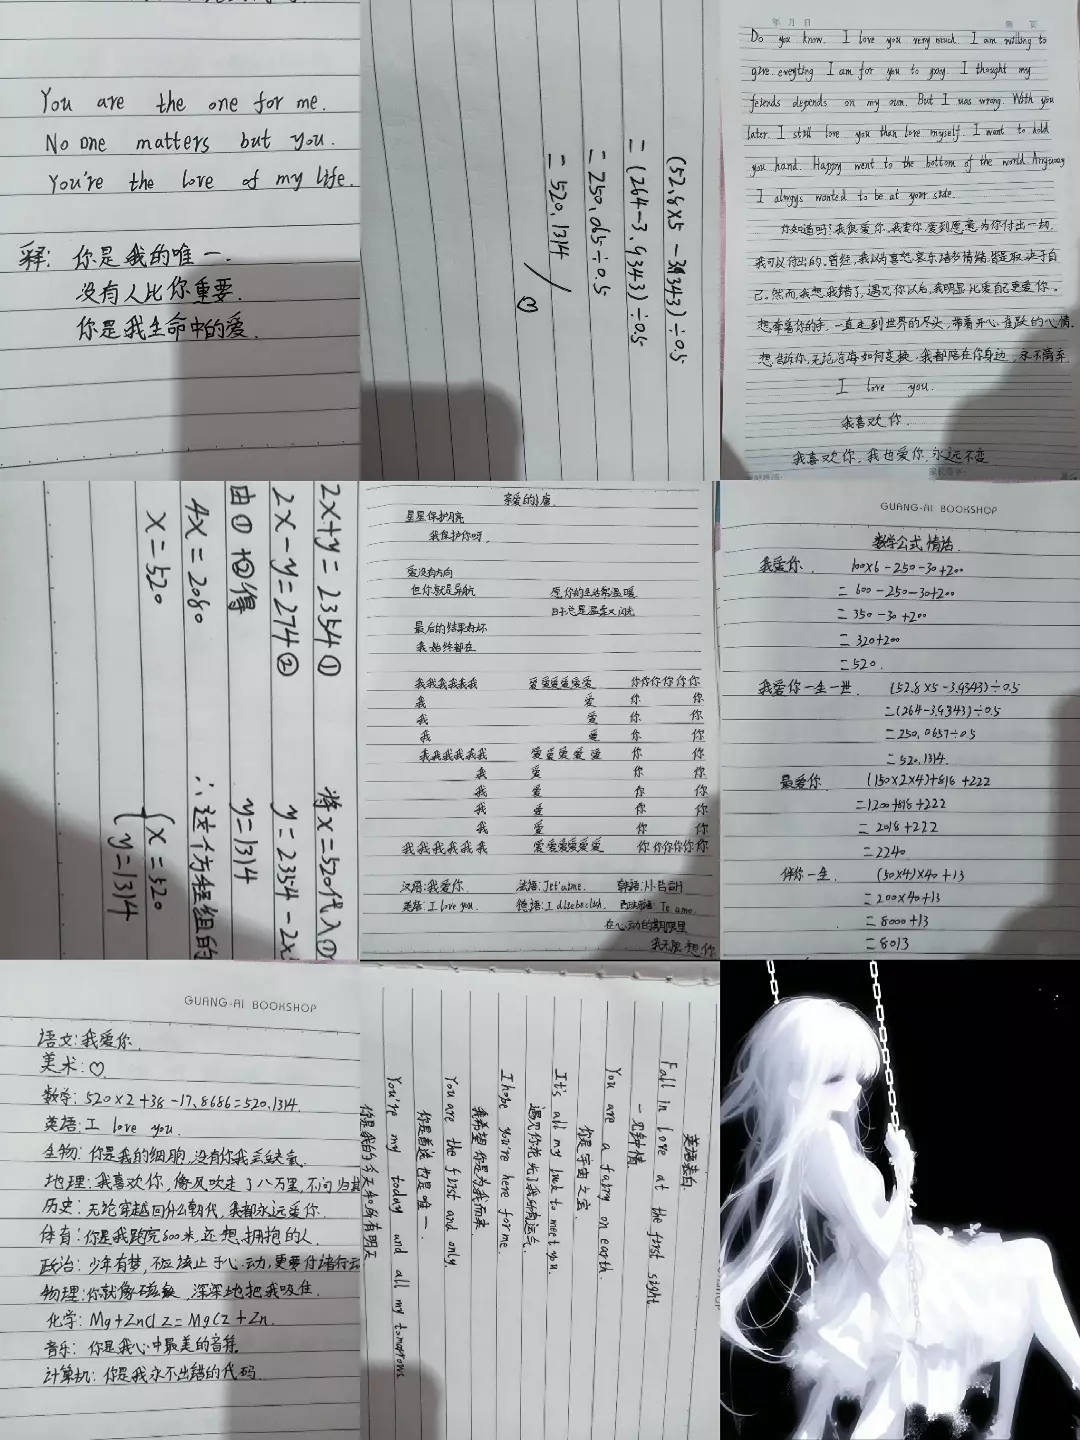 You are the one for me.
No one matters but you.
You're the love of my life.
释: 你是我的唯一.
没有人比你重要.
你是我生命中的爱.
(52.8×5-3.9343)÷0.5
=(264-3.9343)÷0.5
=250.065÷0.5
=520.1314
年 月 日
Do you know. I love you very much. I am willing to
give. eveyting I am for you to pay. I thought my
feiends depends on my own. But I was wrong. With you
later. I still love you than love myself. I want to hold
you hand. Happy went to the bottom of the world. Anyway
I always wanted to be at your side.
你知道吗?我很爱你,我爱你,爱到愿意为你付出一切.
我可以付出的.曾经,我以为喜怒哀乐诸多情绪,皆是取决于自
己.然而我想我错了,遇见你以后,我明显比爱自己更爱你.
想牵着你的手,一直走到世界的尽头,带着开心雀跃的心情.
想告诉你,无论沧海如何变换.我都陪在你身边,永不离弃
I love you.
我喜欢你.
我喜欢你,我也爱你,永远不变
2x+y=2354①
2x-y=274②
由①+②得
4x=2080
x=520
将x=520代入①
y=2354-2x
y=1314
∴这个方程组的
{x=520
y=1314
星星保护月亮
我保护你呀.
爱没有方向
但你就是导航
愿你的生活常温暖
日子总是温柔又闪光
最后的结果好坏
我始终都在
我我我我我我 爱爱爱爱爱爱 你你你你你你
我 爱 你 你
我 爱 你 你
我 爱 你 你
我我我我我我 爱爱爱爱爱 你 你
我 爱 你 你
我 爱 你 你
我 爱 你 你
我 爱 你 你
我我我我我我 爱爱爱爱爱爱 你你你你你你
汉语:我爱你. 法语: Jet'aime.
英语: I love you. 德语: Te amo.
在心动的期限里
我无限想你
GUANG-AI BOOKSHOP
数学公式情话.
我爱你. 100×6-250-30+200
=600-250-30+200
=350-30+200
=320+200
=520.
我爱你一生一世. (52.8×5-3.9343)÷0.5
=(264-3.9343)÷0.5
=250.0657÷0.5
=520.1314.
最爱你 (150×2×4)+818+222
=1200+818+222
=2018+222
=2240.
伴你一生. (50×4)×40+13
=200×40+13
=8000+13
=8013
GUANG-AI BOOKSHOP
语文:我爱你.
美术:♡
数学: 520×2+38-17.8686=520.1314.
英语: I love you.
生物:你是我的细胞,没有你我会缺氧.
地理:我喜欢你,像风吹走了八万里,不问归
历史:无论穿越回什么朝代,我都永远爱你.
体育:你是我跑完800米,还想拥抱的人.
政治:少年有梦,不应该止于心动,更要付诸行动
物理:你就像磁铁,深深地把我吸住.
化学: Mg+ZnCl2=MgCl2+Zn.
音乐:你是我心中最美的音符.
计算机:你是我永不出错的代码.
英语表白.
Fall in love at the first sight
一见钟情.
You are a fabry on earth.
你是宇宙之宝.
It's all my luck to meet you.
遇见你花光了我所有运气.
I hope you're here for me.
我希望你是为我而来.
You are the first and only.
你是首选也是唯一.
You're my today and all my tomorrows
你是我的今天和所有明天